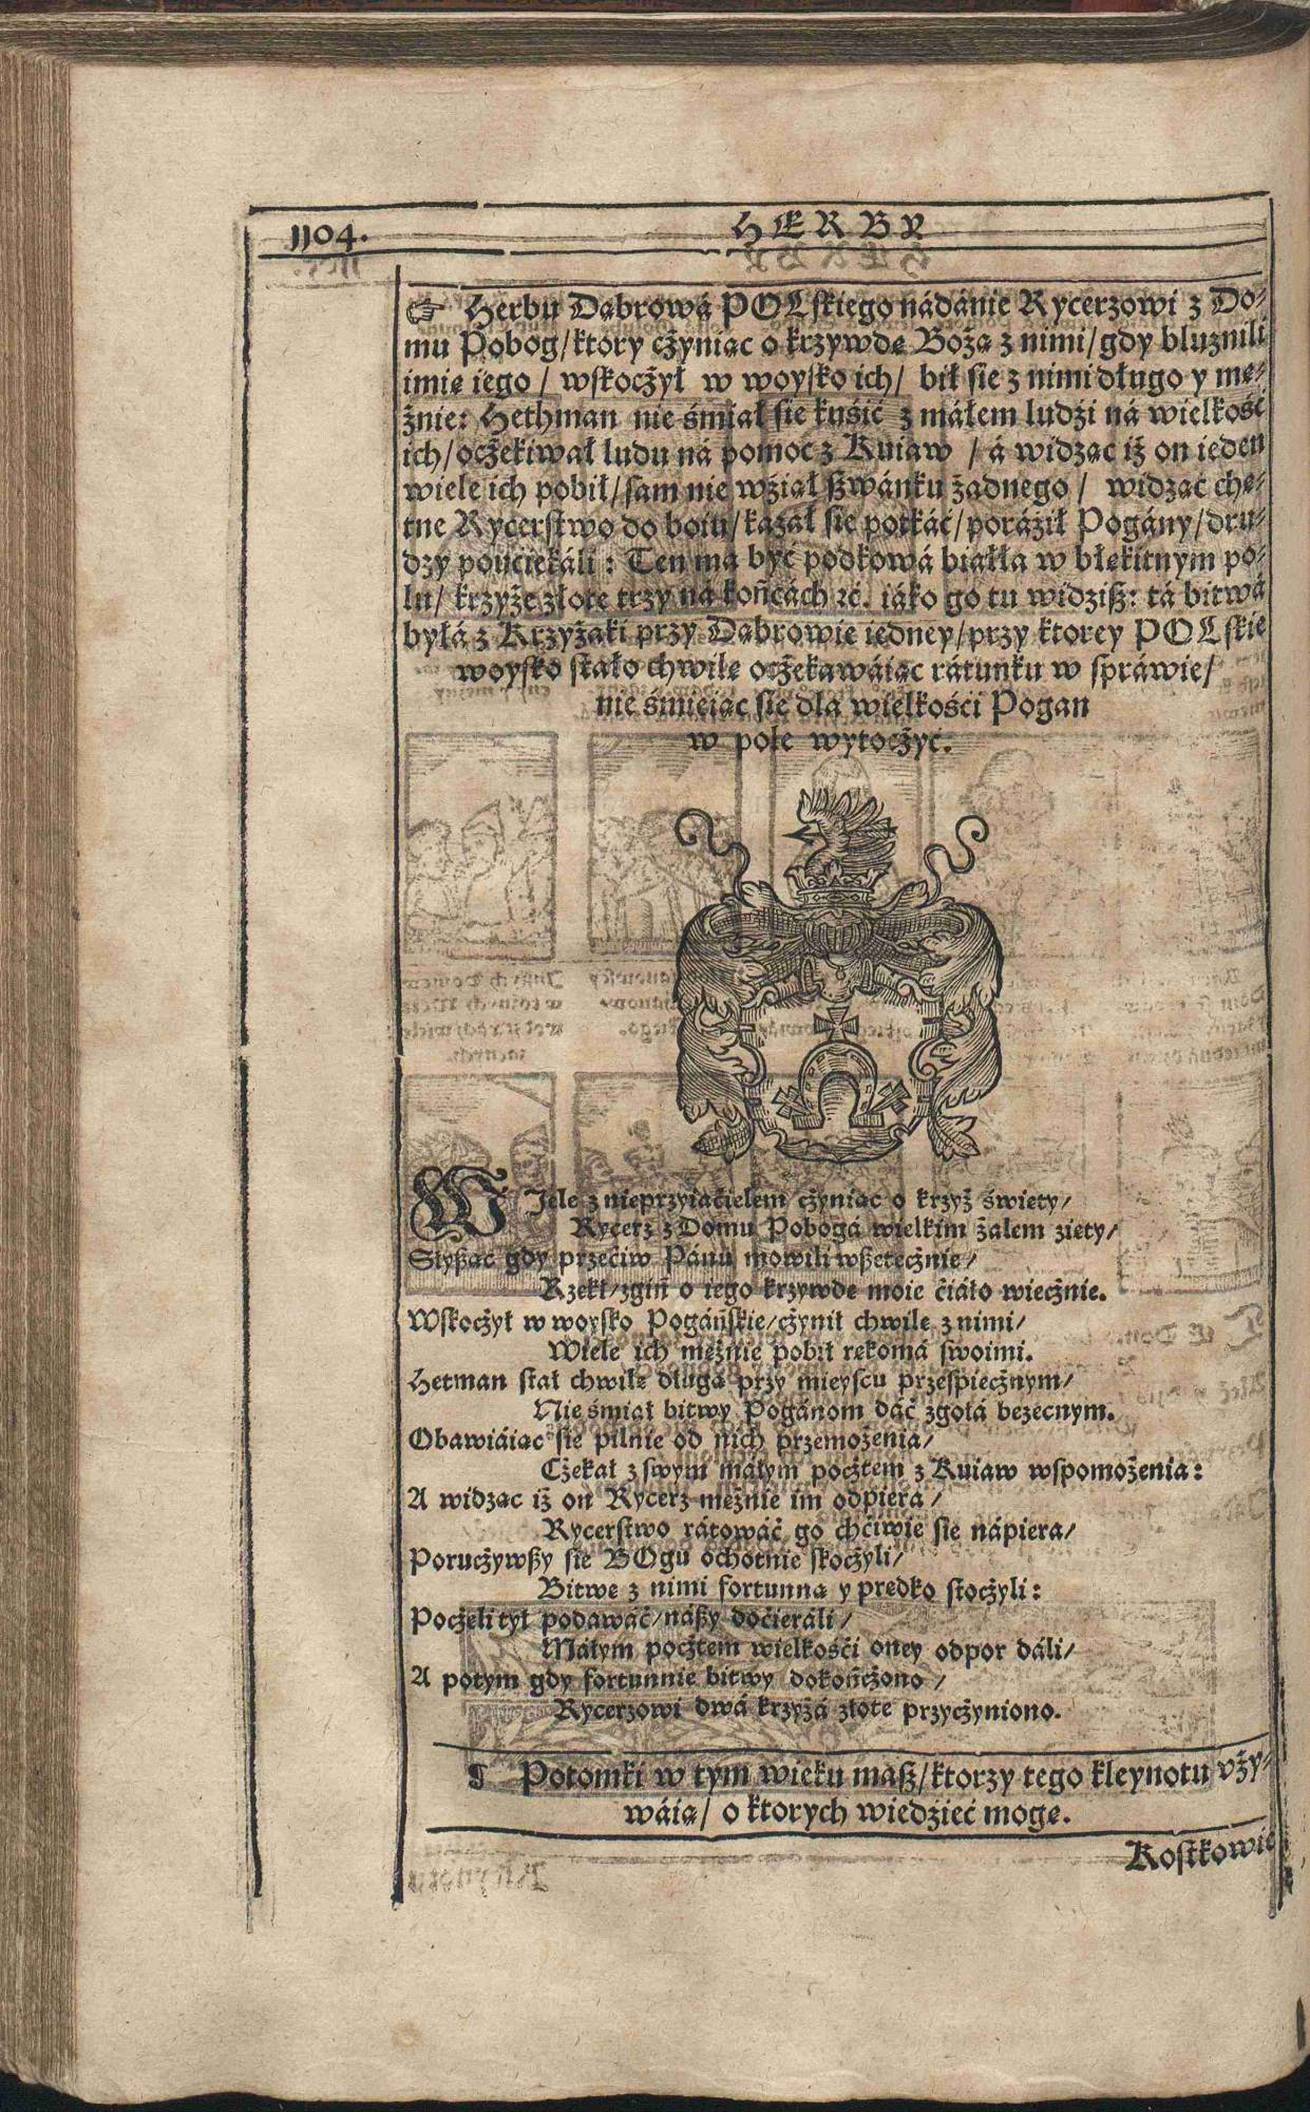 1104.
HERBY
☞ Herbu Dąbrowá POLskiego nádánie Rycerzowi z Do⸗
mu Pobog/ ktory cżyniąc o krzywdę Bożą z nimi/ gdy bluznili
imię iego / wskocżył w woysko ich/ bił sie z nimi długo y mę⸗
żnie: Hethman nie śmiał sie kuśić z máłem ludźi ná wielkość
ich/ ocżekiwał ludu ná pomoc z Kuiaw / á widząc iż on ieden
wiele ich pobił/ sam nie wźiął ßwánku żadnego / widząc chę⸗
tne Rycerstwo do boiu/ kazał sie potkáć/ poráźił Pogány/ dru⸗
dzy pouciekáli : Ten ma być podkowá biała w błękitnym po⸗
lu/ krzyże złote trzy ná końcách ꝛć. iáko go tu widziß: tá bitwá
byłá z Krzyżaki przy Dąbrowie iedney/ przy ktorey POLskie
woysko stało chwilę ocżekawáiąc rátunku w spráwie/
nie śmieiąc się dla wielkości Pogan
w pole wytocżyć.
WJele z nieprzyiaćielem cżyniąc o krzyż święty/
Rycerz z Domu Pobogá wielkim żalem zięty/
Słyßąc gdy przećiw Pánu mowili wßetecżnie/
Rzekł/ zgiń o iego krzywdę moie ćiáło wiecżnie.
Wskocżył w woysko Pogáńskie/ cżynił chwilę z nimi/
Wiele ich mężnie pobił rękomá swoimi.
Hetman stał chwilę długą przy mieyscu przespiecżnym/
Nie śmiał bitwy Pogánom dáć zgołá bezecnym.
Obawiáiąc się pilnie od nich przemożenia/
Cżekał z swym máłym pocżtem z Kuiaw wspomożenia:
A widząc iż on Rycerz mężnie im odpiera /
Rycerstwo rátowáć go chćiwie się nápiera/
Porucżywßy się BOgu ochotnie skocżyli/
Bitwę z nimi fortunną y prędko stocżyli:
Pocżęli tył podawáć/ náßy doćieráli /
Máłym pocżtem wielkośći oney odpor dáli/
A potym gdy fortunnie bitwy dokońcżono /
Rycerzowi dwá krzyżá złote przycżyniono.
¶ Potomki w tym wieku maß/ ktorzy tego kleynotu vży⸗
wáią/ o ktorych wiedzieć mogę.
Kostkowie